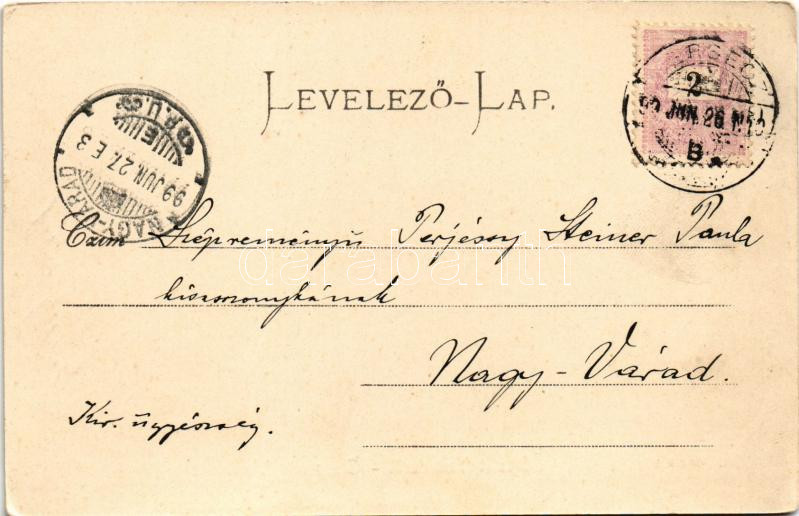 LEVELEZŐ-LAP.
2
99 JUN. 26
B
NAGY-VÁRAD
99 JUN. 27. E 3
Czim Szépreményü Perjéssy Steiner Paula
kisasszonykának
Nagy-Várad.
Kir. ügyészség.
darabanth